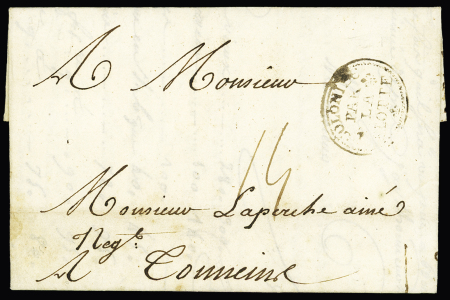 A Monsieur
COLONIES
PAR
LA
14
Monsieur Laperche ainé
Negt.
A Tonneins